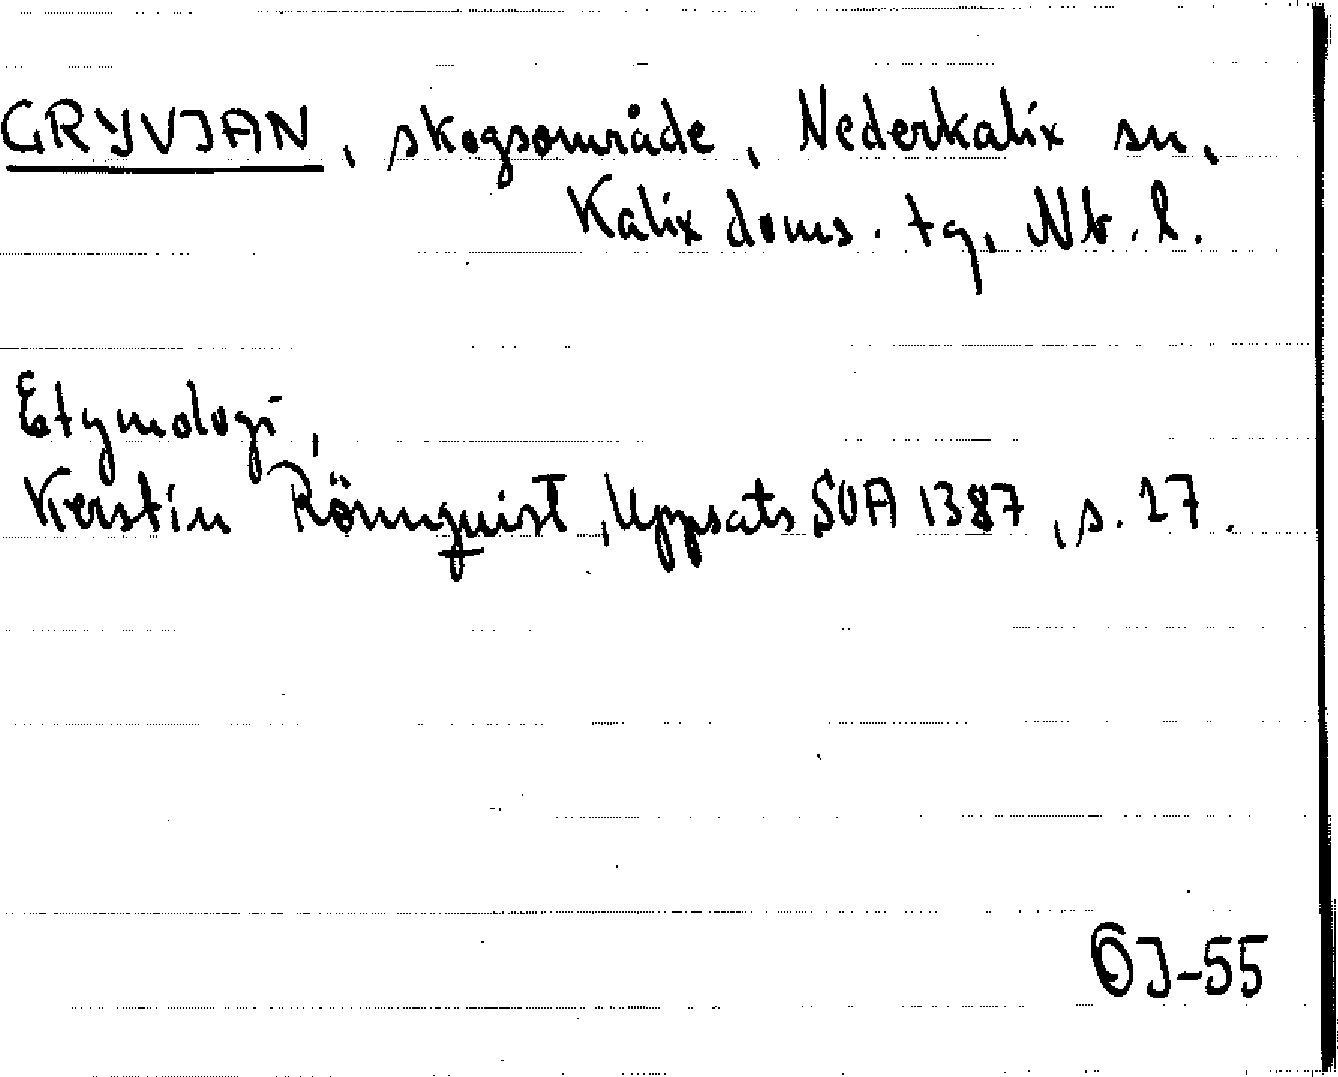 GRYVJAN, skogsområde, Nederkalix sn,
Kalix doms. tg, Nb. l.
Etymologi,
Kerstin Rönnquist, Uppsats SOA 1387, s. 27.
OJ-55